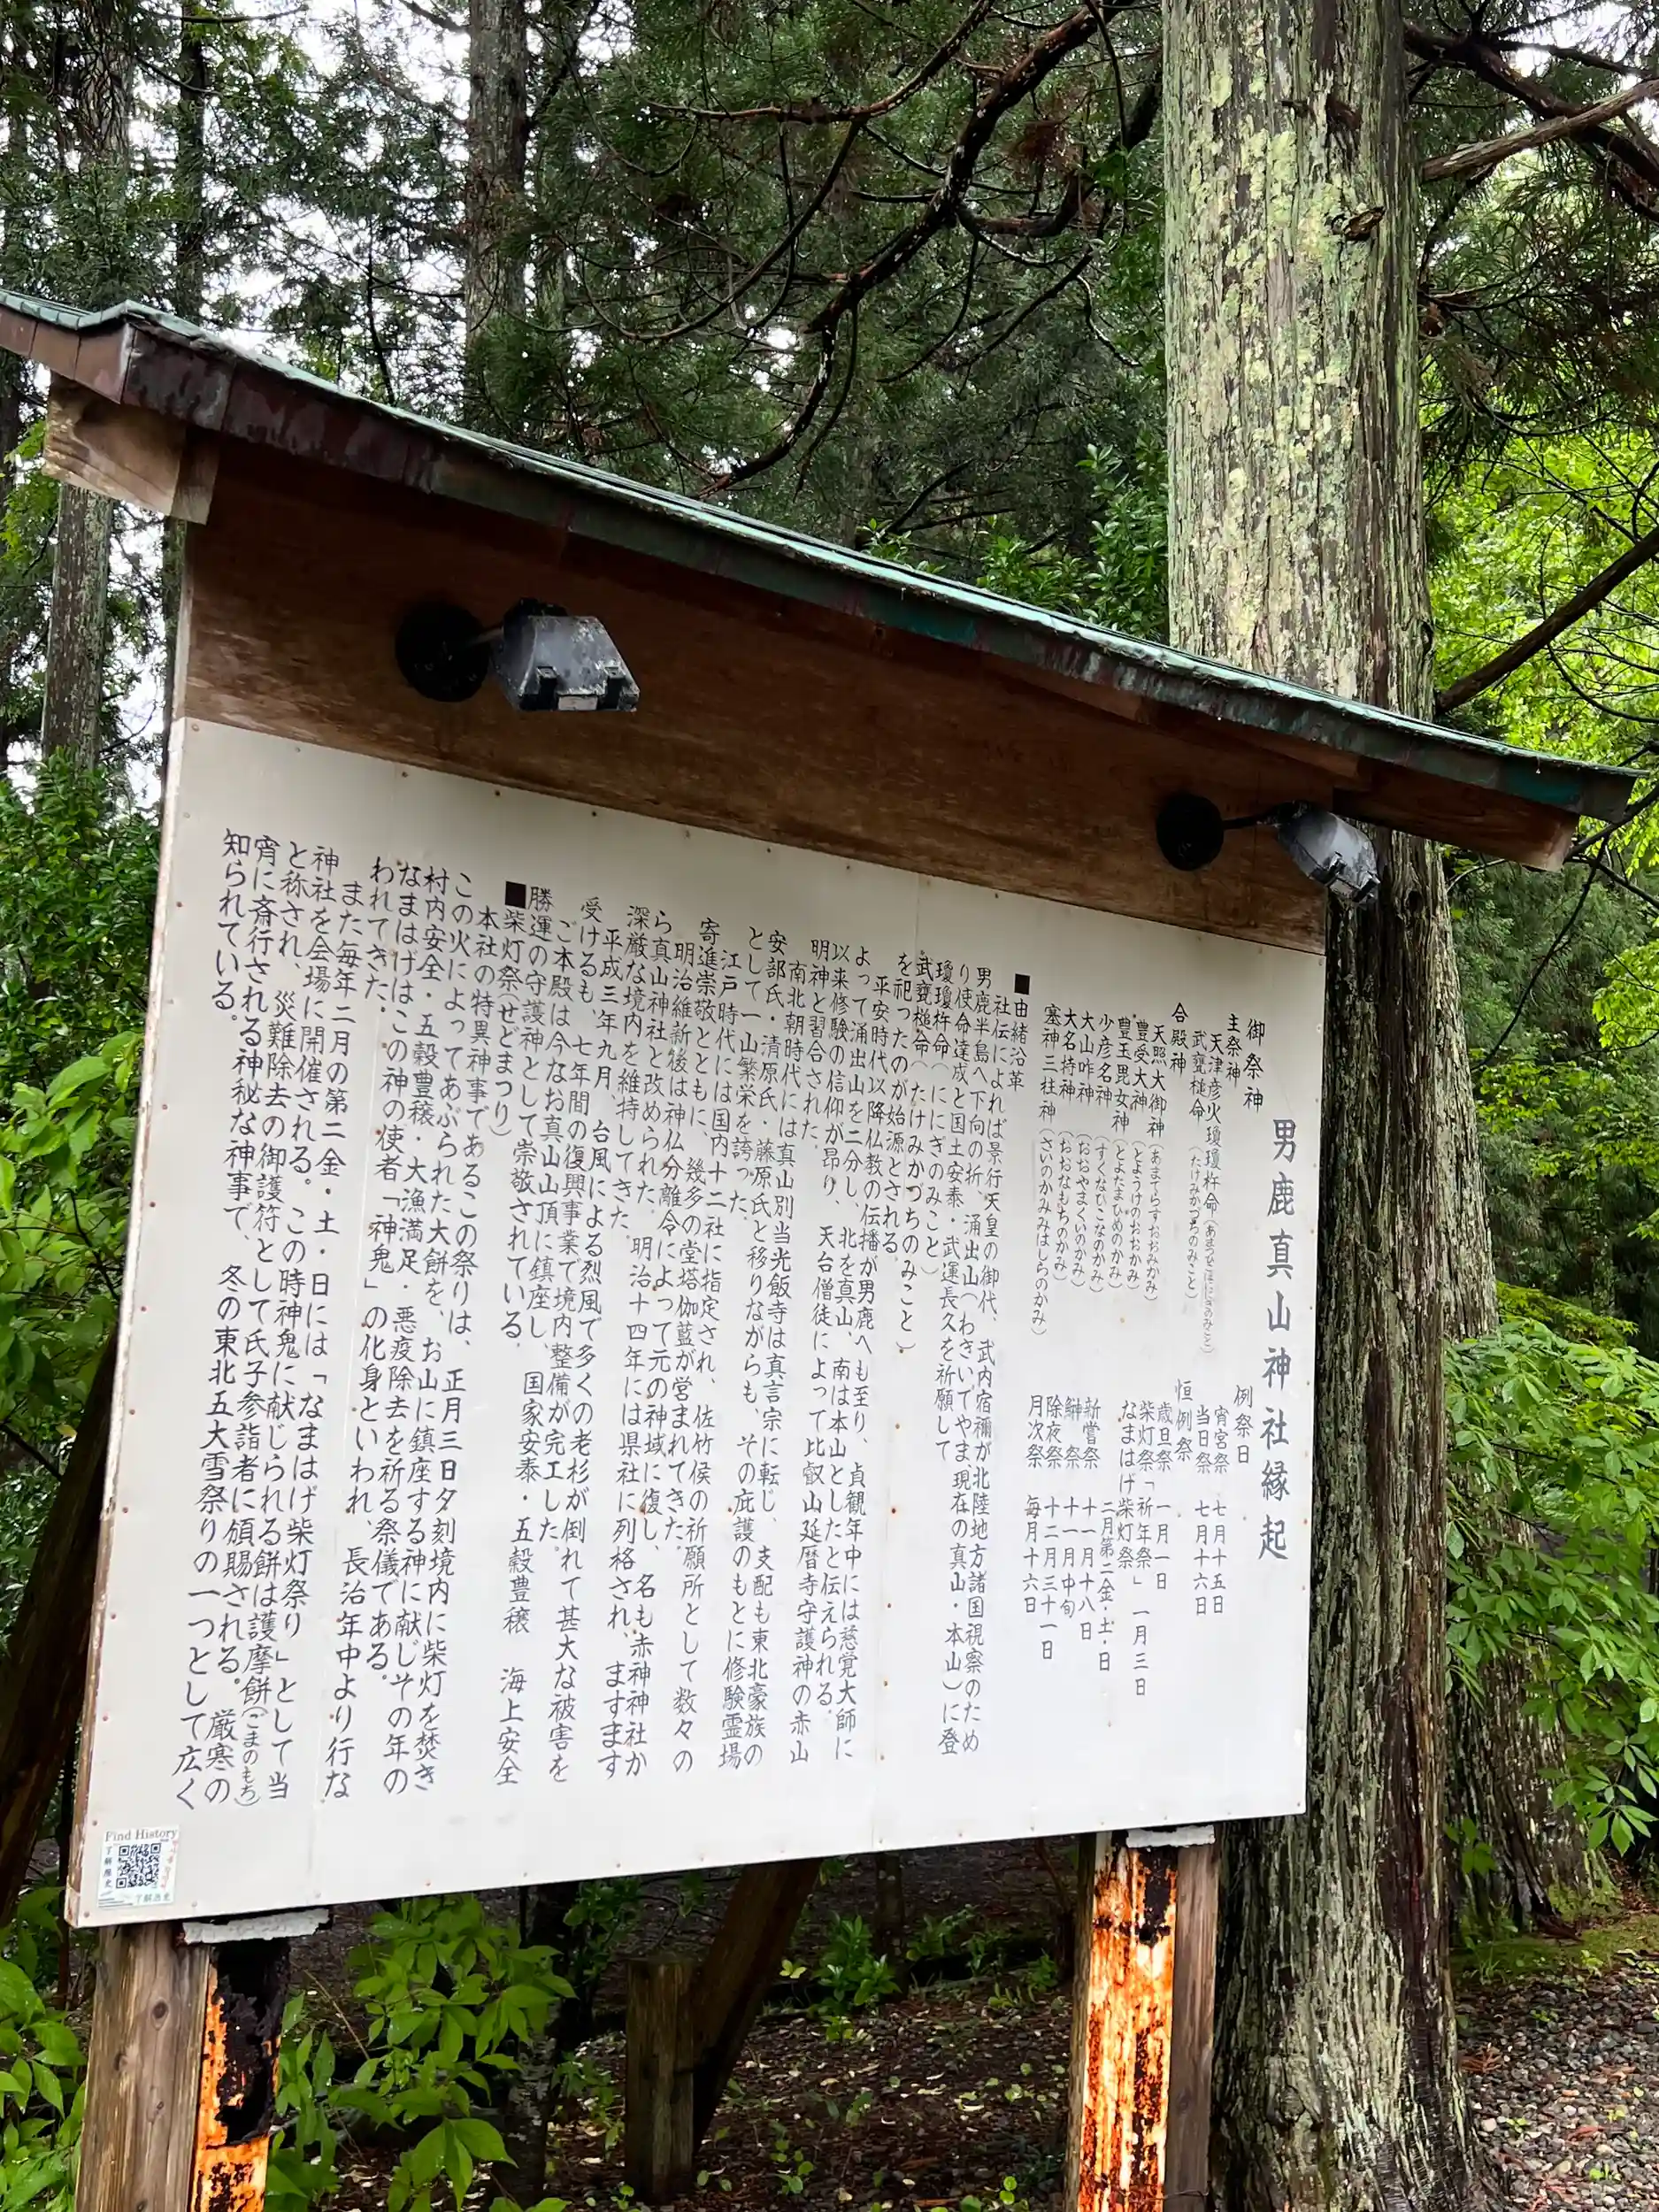 男鹿真山神社縁起
御祭神
主祭神
天津彦火瓊瓊杵命
武甕槌命(たけみかづちのみこと)
合殿神
天照大御神(あまてらすおおみかみ)
豊受大神(とようけのおおかみ)
豊玉毘女神(とよたまひめのかみ)
少彦名神(すくなひこなのかみ)
大山咋神(おおやまくいのかみ)
大名持神(おおなもちのかみ)
塞神三柱神(さいのかみみはしらのかみ)
例祭日
宵宮祭 七月十五日
当日祭 七月十六日
恒例祭
歳旦祭 一月一日
柴灯祭「祈年祭」 一月三日
なまはげ柴灯祭 二月第二金・土・日
新嘗祭 十一月十八日
鰰祭 十一月中旬
除夜祭 十二月三十一日
月次祭 毎月十六日
■由緒沿革
社伝によれば景行天皇の御代、武内宿禰が北陸地方諸国視察のため
男鹿半島へ下向の折、涌出山(わきいでやま現在の真山・本山)に登
り使命達成と国土安泰・武運長久を祈願して
瓊瓊杵命(ににぎのみこと)
武甕槌命(たけみかづちのみこと)
を祀ったのが始源とされる。
平安時代以降仏教の伝播が男鹿へも至り、貞観年中には慈覚大師に
よって涌出山を二分し、北を真山、南は本山としたと伝えられる。
以来修験の信仰が昂り、天台僧徒によって比叡山延暦寺守護神の赤山
明神と習合された。
南北朝時代には真山別当光飯寺は真言宗に転じ、支配も東北豪族の
安部氏・清原氏・藤原氏と移りながらも、その庇護のもとに修験霊場
として一山繁栄を誇った。
江戸時代には国内十二社に指定され、佐竹侯の祈願所として数々の
寄進崇敬とともに、幾多の堂塔伽藍が営まれてきた。
明治維新後は神仏分離令によって元の神域に復し、名も赤神神社か
ら真山神社と改められた。明治十四年には県社に列格され、ますます
深厳な境内を維持してきた。
平成三年九月、台風による烈風で多くの老杉が倒れて甚大な被害を
受けるも、七年間の復興事業で境内整備が完工した。
ご本殿は今なお真山山頂に鎮座し、国家安泰・五穀豊穣 海上安全
勝運の守護神として崇敬されている。
■柴灯祭(せどまつり)
本社の特異神事であるこの祭りは、正月三日夕刻境内に柴灯を焚き
この火によってあぶられた大餅を、お山に鎮座する神に献じその年の
村内安全・五穀豊穣・大漁満足・悪疫除去を祈る祭儀である。
なまはげはこの神の使者「神鬼」の化身といわれ、長治年中より行な
われてきた。
また毎年二月の第二金・土・日には「なまはげ柴灯祭り」として当
神社を会場に開催される。この時神鬼に献じられる餅は護摩餅(ごまのもち)
と称され、災難除去の御護符として氏子参詣者に頒賜される。厳寒の
宵に斎行される神秘な神事で、冬の東北五大雪祭りの一つとして広く
知られている。
Find History
了解歴史